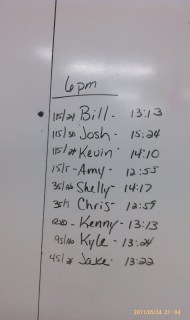 6pm
115/24 Bill - 13:13
115/30 Josh - 15:24
115/24 Kevin - 14:10
15/5 - Amy - 12:55
35/ Shelly - 14:17
35/ Chris - 12:59
Kenny - 13:13
95/ Kyle - 13:24
45/ Jake - 13:22
2011/05/24 21:04